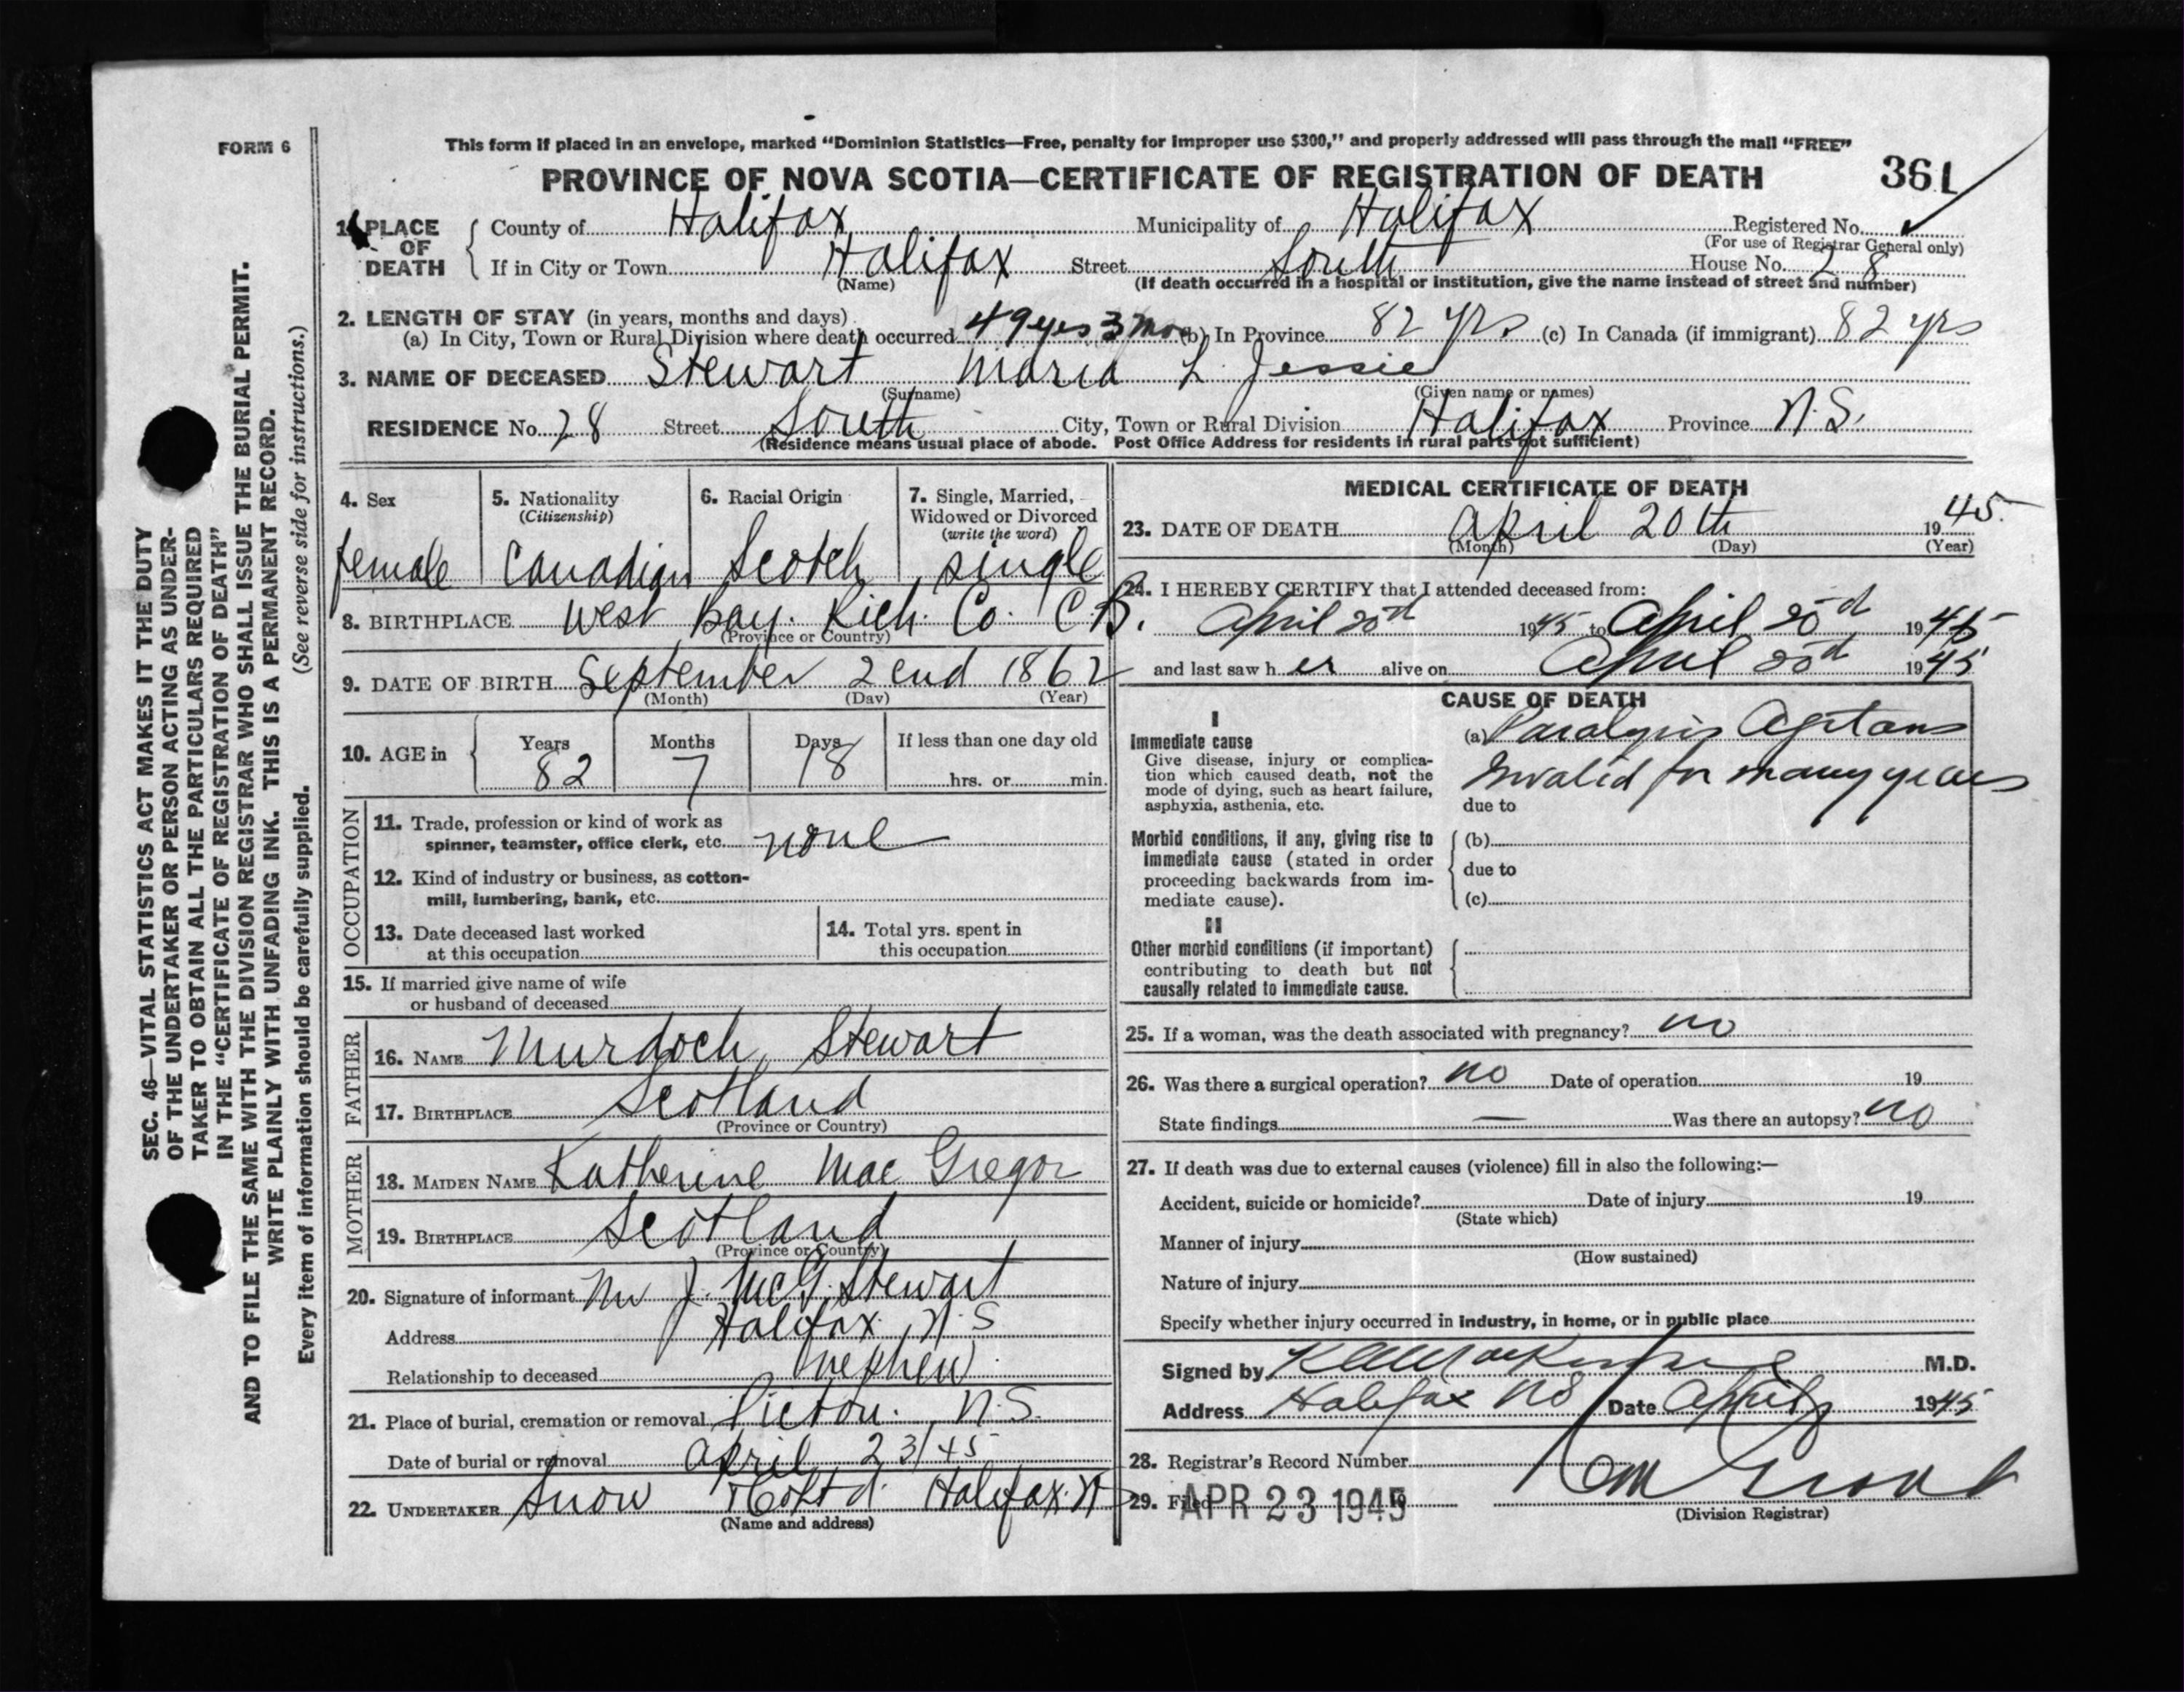 FORM 6
This form if placed in an envelope, marked “Dominion Statistics—Free, penalty for improper use $300,” and properly addressed will pass through the mail “FREE”
PROVINCE OF NOVA SCOTIA—CERTIFICATE OF REGISTRATION OF DEATH 361
1. PLACE OF DEATH County of Halifax Municipality of Halifax Registered No.
(For use of Registrar General only)
If in City or Town Halifax Street South House No. 28
(Name) (If death occurred in a hospital or institution, give the name instead of street and number)
2. LENGTH OF STAY (in years, months and days)
(a) In City, Town or Rural Division where death occurred 49 yrs 3 mos (b) In Province 82 yrs (c) In Canada (if immigrant) 82 yrs
3. NAME OF DECEASED Stewart Maria L. Jessie
(Surname) (Given name or names)
RESIDENCE No. 28 Street South City, Town or Rural Division Halifax Province N.S.
(Residence means usual place of abode. Post Office Address for residents in rural parts not sufficient)
4. Sex
female
5. Nationality
(Citizenship)
Canadian
6. Racial Origin
Scotch
7. Single, Married,
Widowed or Divorced
(write the word)
single
8. BIRTHPLACE West Bay. Rich. Co. C.B.
(Province or Country)
9. DATE OF BIRTH September 2end 1862
(Month) (Day) (Year)
10. AGE in Years Months Days If less than one day old
82 7 18 hrs. or min.
OCCUPATION
11. Trade, profession or kind of work as
spinner, teamster, office clerk, etc. none
12. Kind of industry or business, as cotton-
mill, lumbering, bank, etc.
13. Date deceased last worked
at this occupation
14. Total yrs. spent in
this occupation
15. If married give name of wife
or husband of deceased
FATHER
16. NAME Murdoch Stewart
17. BIRTHPLACE Scotland
(Province or Country)
MOTHER
18. MAIDEN NAME Katherine Mac Gregor
19. BIRTHPLACE Scotland
(Province or Country)
20. Signature of informant Mr J. McG. Stewart
Address Halifax, N.S
Relationship to deceased nephew
21. Place of burial, cremation or removal Pictou. N.S.
Date of burial or removal April 23/45
22. UNDERTAKER Snow & Co Ltd. Halifax. N.S
(Name and address)
MEDICAL CERTIFICATE OF DEATH
23. DATE OF DEATH April 20th 1945.
(Month) (Day) (Year)
24. I HEREBY CERTIFY that I attended deceased from:
April 20d 1945 to April 20d 1945
and last saw her alive on April 20d 1945
CAUSE OF DEATH
I
Immediate cause
Give disease, injury or complica-
tion which caused death, not the
mode of dying, such as heart failure,
asphyxia, asthenia, etc.
(a) Paralysis Agitans
Invalid for many years
due to
Morbid conditions, if any, giving rise to
immediate cause (stated in order
proceeding backwards from im-
mediate cause).
(b)
due to
(c)
II
Other morbid conditions (if important)
contributing to death but not
causally related to immediate cause.
25. If a woman, was the death associated with pregnancy? no
26. Was there a surgical operation? no Date of operation 19
State findings — Was there an autopsy? no
27. If death was due to external causes (violence) fill in also the following:—
Accident, suicide or homicide? Date of injury 19
(State which)
Manner of injury
(How sustained)
Nature of injury
Specify whether injury occurred in industry, in home, or in public place
Signed by M.D.
Address Halifax NS Date April 1945
28. Registrar's Record Number
29. Filed APR 23 1945
(Division Registrar)
SEC. 46—VITAL STATISTICS ACT MAKES IT THE DUTY
OF THE UNDERTAKER OR PERSON ACTING AS UNDER-
TAKER TO OBTAIN ALL THE PARTICULARS REQUIRED
IN THE “CERTIFICATE OF REGISTRATION OF DEATH”
AND TO FILE THE SAME WITH THE DIVISION REGISTRAR WHO SHALL ISSUE THE BURIAL PERMIT.
WRITE PLAINLY WITH UNFADING INK. THIS IS A PERMANENT RECORD.
Every item of information should be carefully supplied. (See reverse side for instructions.)